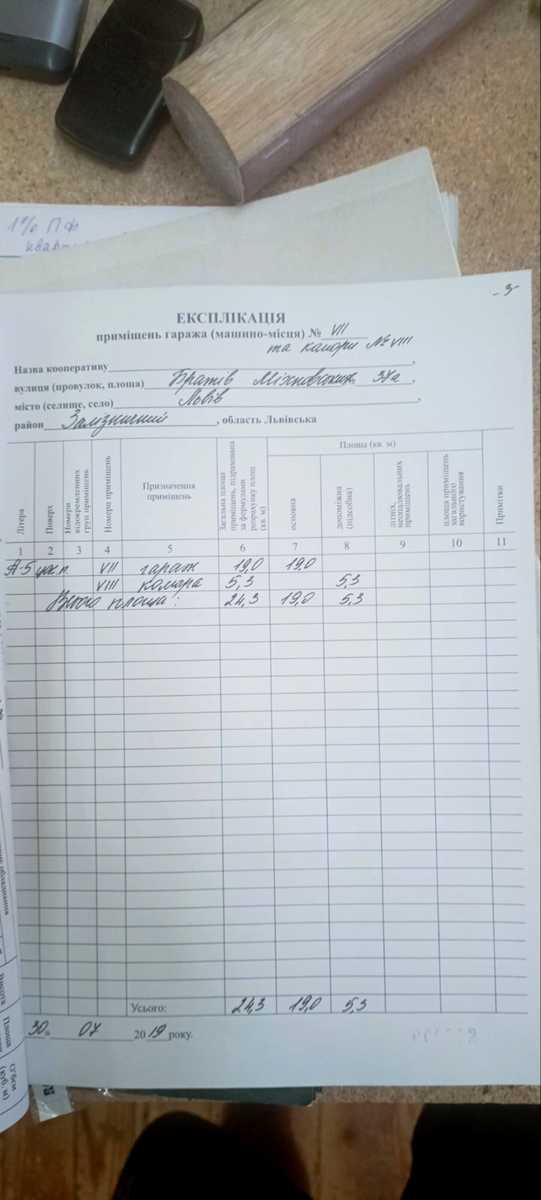 1% ПФ
- 3 -
ЕКСПЛІКАЦІЯ
приміщень гаража (машино-місця) № VII
та комори № VIII
Назва кооперативу
вулиця (провулок, площа) Братів Міхновських 37а,
місто (селище, село) Львів,
район Залізничний, область Львівська
Літера
Поверх
Номери відокремлених груп приміщень
Номери приміщень
Призначення приміщень
Загальна площа приміщень, підрахована за формулами розрахунку площ (кв. м)
Площа (кв. м)
основна
допоміжна (підсобна)
літніх, неопалювальних приміщень
площа приміщень загального користування
Примітки
1 2 3 4 5 6 7 8 9 10 11
А-5 VII гараж 19,0 19,0
VIII комора 5,3 5,3
Всього площа: 24,3 19,0 5,3
Усього: 24,3 19,0 5,3
30 07 2019 року.
Площа
(куб. м)